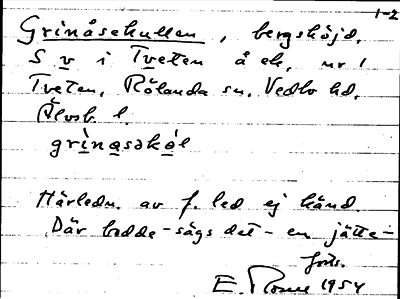 1-2
Grinåsekullen, bergshöjd.
S v i Tveten å ek. nr 1
Tveten, Rölanda sn. Vedbo hd.
Älvsb. l.
Härledn. av f. led ej känd.
Där bodde - sägs det - en jätte -
forts.
E. 1954